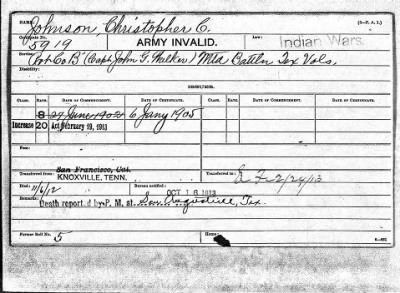 NAME: Johnson, Christopher C. (3—F. A. I.)
Certificate No. 5919 ARMY INVALID. Law: Indian Wars.
Service: Pvt Co B (Capt John G. Walker) Mtd Battln Tex Vols.
Disability:
CLASS. RATE. DATE OF COMMENCEMENT. DATE OF CERTIFICATE. CLASS. RATE. DATE OF COMMENCEMENT. DATE OF CERTIFICATE.
8 27 June 1902 6 Jany 1905
Increase 20 Act February 19, 1913
Transferred from: San Francisco, Cal. Transferred to:
KNOXVILLE, TENN. 2/24/13
Died: 11/6/12 Bureau notified: OCT 16 1913
Remarks: Death reported by P. M. at San Augustine, Tex.
Former Roll No. 5 Home: